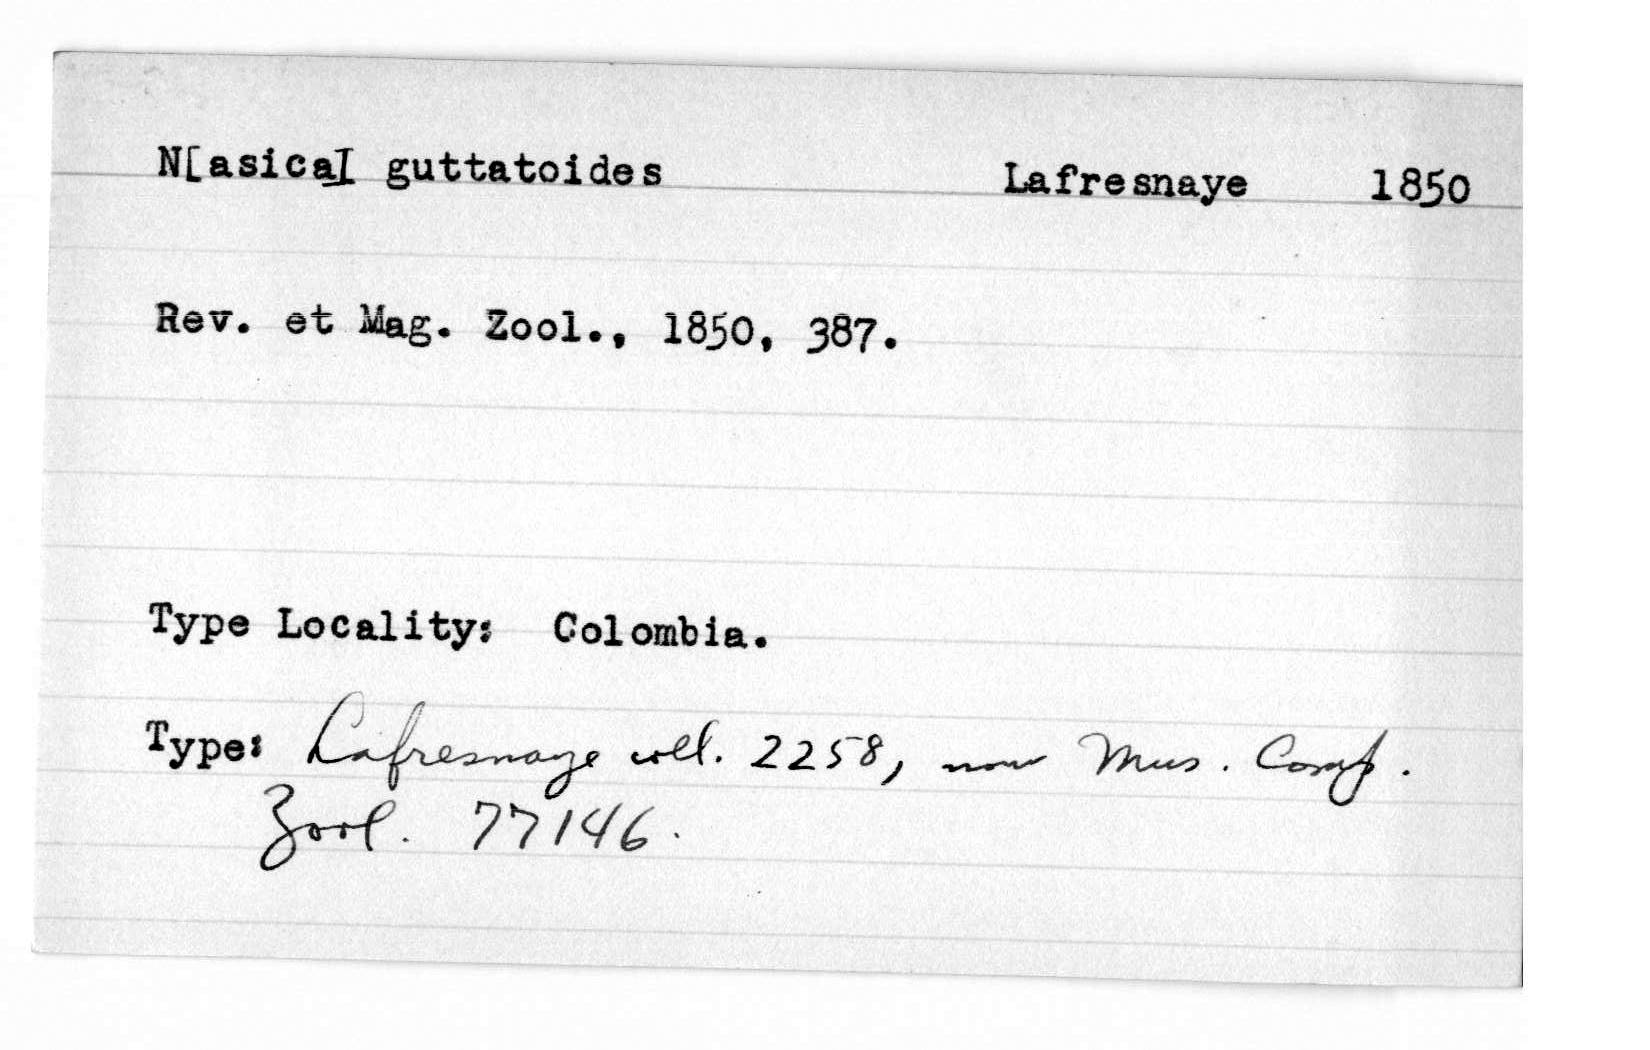 N[asica] guttatoides Lafresnaye 1850
Rev. et Mag. Zool., 1850, 387.
Type Locality: Colombia.
Type: Lafresnaye coll. 2258, now Mus. Comp.
Zool. 77146.